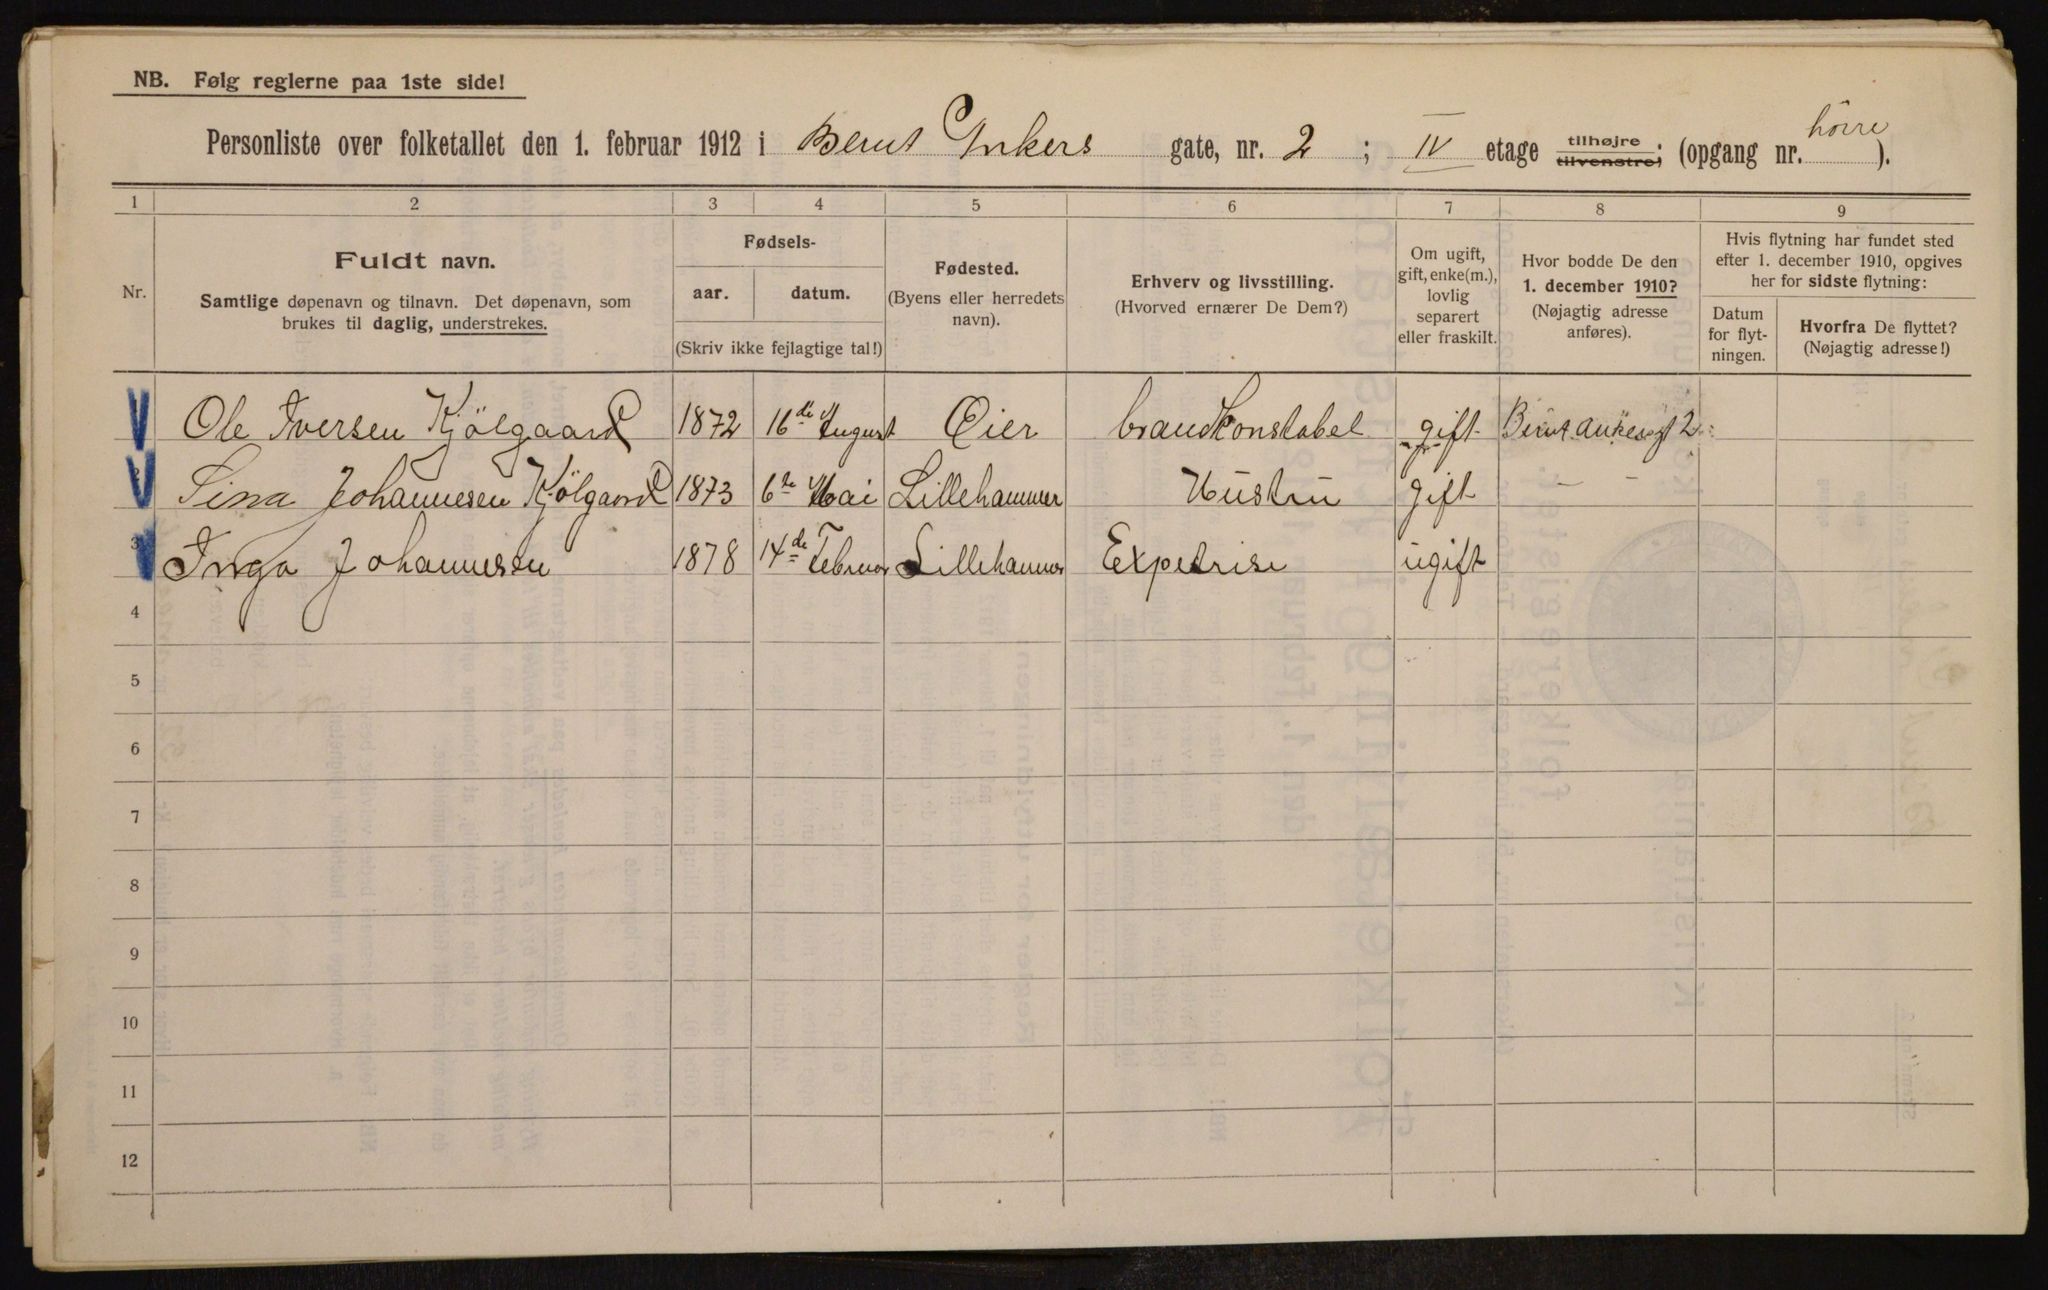 NB. Følg reglerne paa 1ste side!
Personliste over folketallet den 1. februar 1912 i Bernt Ankers gate, nr. 2 ; IV etage tilhøjre tilvenstre; (opgang nr. höire ).
1 2 3 4 5 6 7 8 9
Nr.
Fuldt navn.
Samtlige døpenavn og tilnavn. Det døpenavn, som
brukes til daglig, understrekes.
Fødsels-
aar. datum.
(Skriv ikke fejlagtige tal!)
Fødested.
(Byens eller herredets
navn).
Erhverv og livsstilling.
(Hvorved ernærer De Dem?)
Om ugift,
gift, enke(m.),
lovlig
separert
eller fraskilt.
Hvor bodde De den
1. december 1910?
(Nøjagtig adresse
anføres).
Hvis flytning har fundet sted
efter 1. december 1910, opgives
her for sidste flytning:
Datum
for flyt-
ningen.
Hvorfra De flyttet?
(Nøjagtig adresse!)
Ole Iversen Kjölgaard 1872 16de August Öier brandkonstabel gift Bernt ankesgt 2
Sina Johannesen Kjölgaard 1873 6te Mai Lillehammer Hustru gift — —
3 Inga Johannesen 1878 14de Februar Lillehammer Expedrise ugift
4
5
6
7
8
9
10
11
12